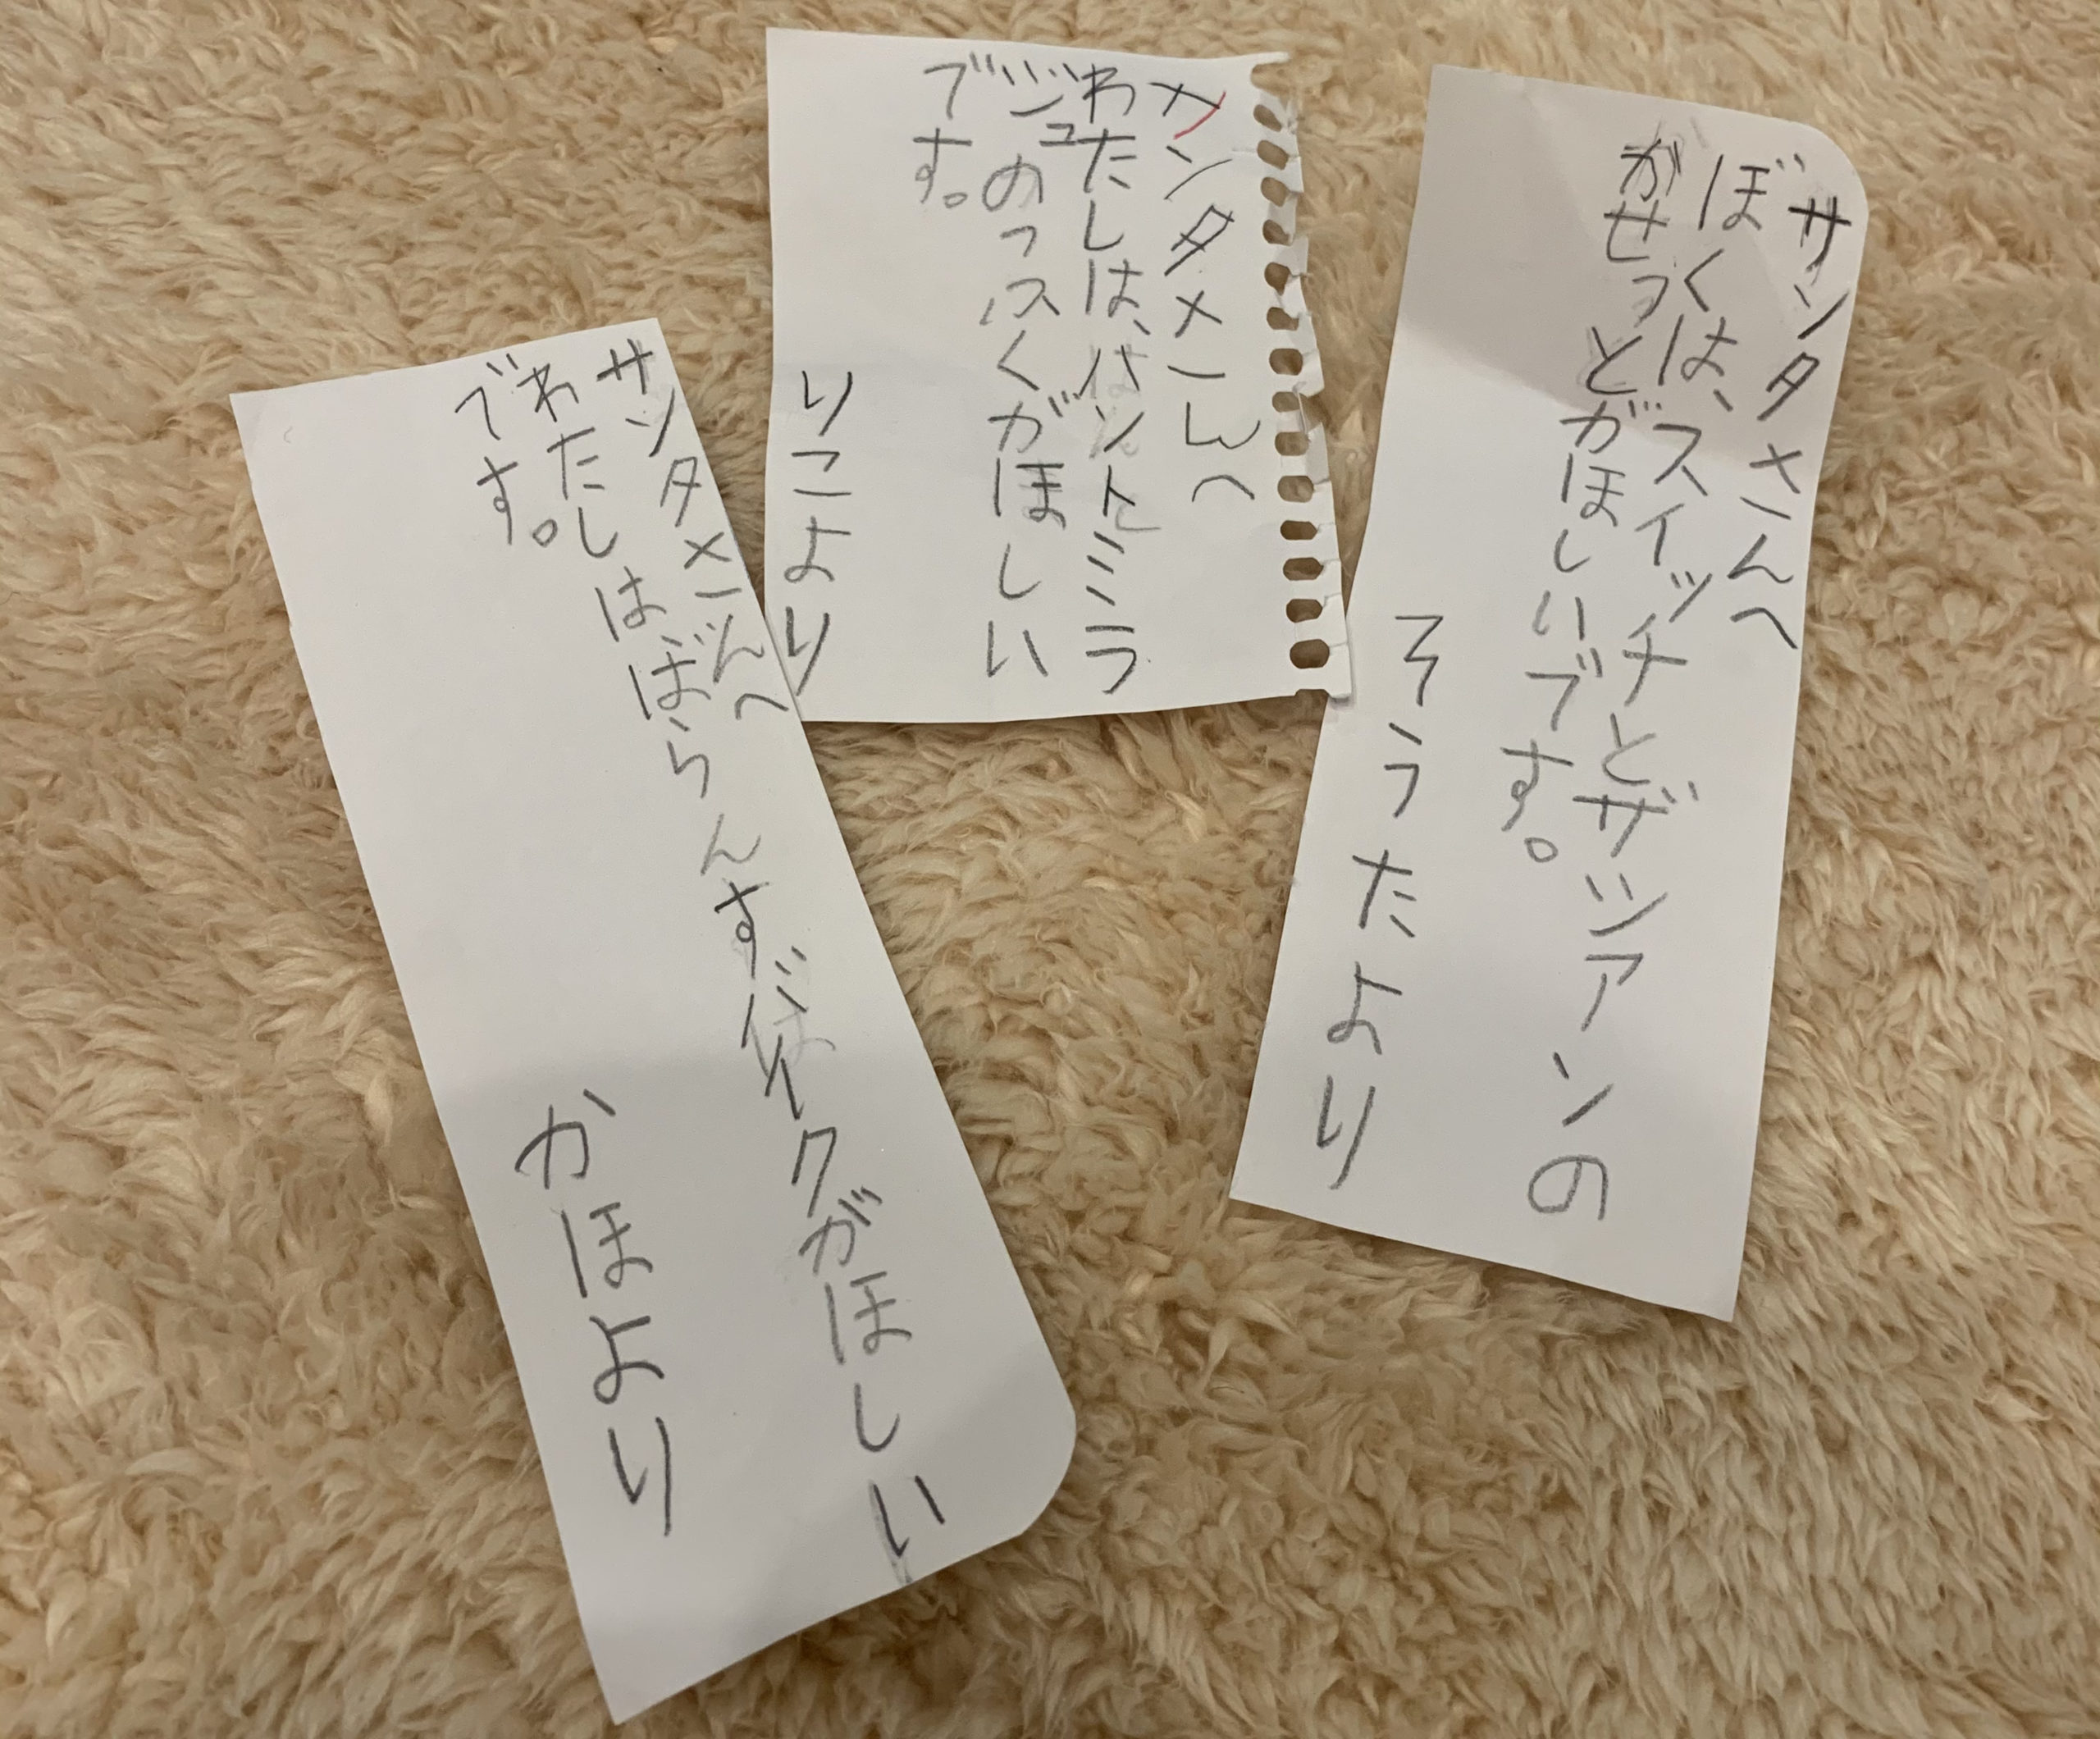 サンタさんへ
ぼくは、スイッチとザシアンの
がせっとがほしいです。
そうたより
サンタさんへ
わたしは、パントミラ
ジュのっふくがほしい
です。
りこより
サンタさんへ
わたしはばらんすバイクがほしい
です。
かほより